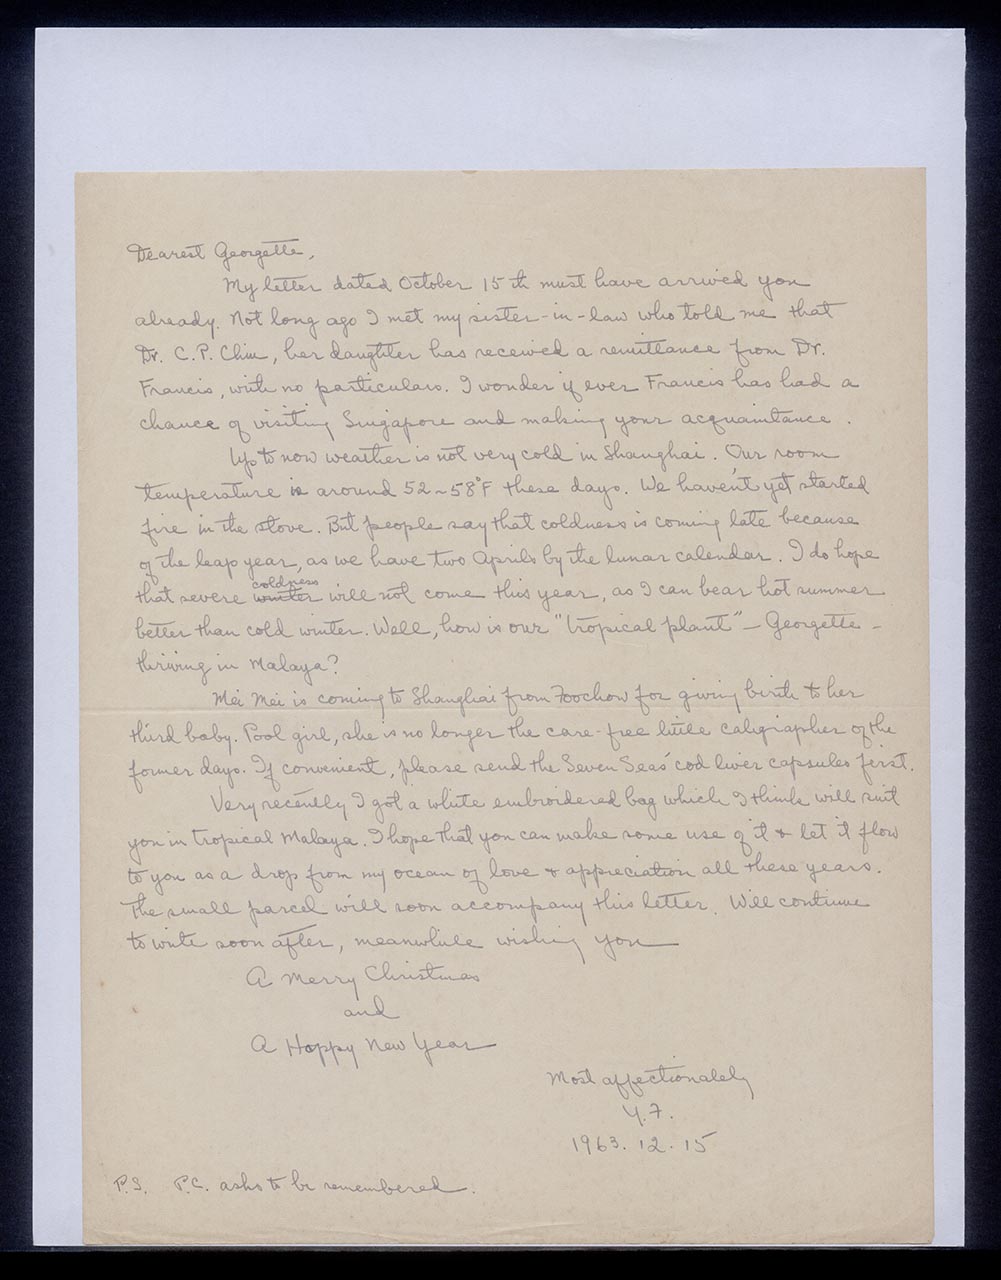 Dearest Georgette,
My letter dated October 15th must have arrived you
already. Not long ago I met my sister-in-law who told me that
Dr. C.P. Chiu, her daughter has received a remittance from Dr.
Francis, with no particulars. I wonder if ever Francis has had a
chance of visiting Singapore and making your acquaintance.
Up to now weather is not very cold in Shanghai. Our room
temperature is around 52~58°F these days. We haven't yet started
fire in the stove. But people say that coldness is coming late because
of the leap year, as we have two Aprils by the lunar calendar. I do hope
coldness
that severe winter will not come this year, as I can bear hot summer
better than cold winter. Well, how is our "tropical plant" – Georgette –
thriving in Malaya?
Mei Mei is coming to Shanghai from Foochow for giving birth to her
third baby. Pool girl, she is no longer the care-free little caligrapher of the
former days. If convenient, please send the Seven Seas' cod liver capsules first.
Very recently I got a white embroidered bag which I think will suit
you in tropical Malaya. I hope that you can make some use of it & let it flow
to you as a drop from my ocean of love & appreciation all these years.
The small parcel will soon accompany this letter. Will continue
to write soon after, meanwhile wishing you
A Merry Christmas
and
A Happy New Year
Most affectionately
Y.F.
1963.12.15
P.S. P.C. asks to be remembered.